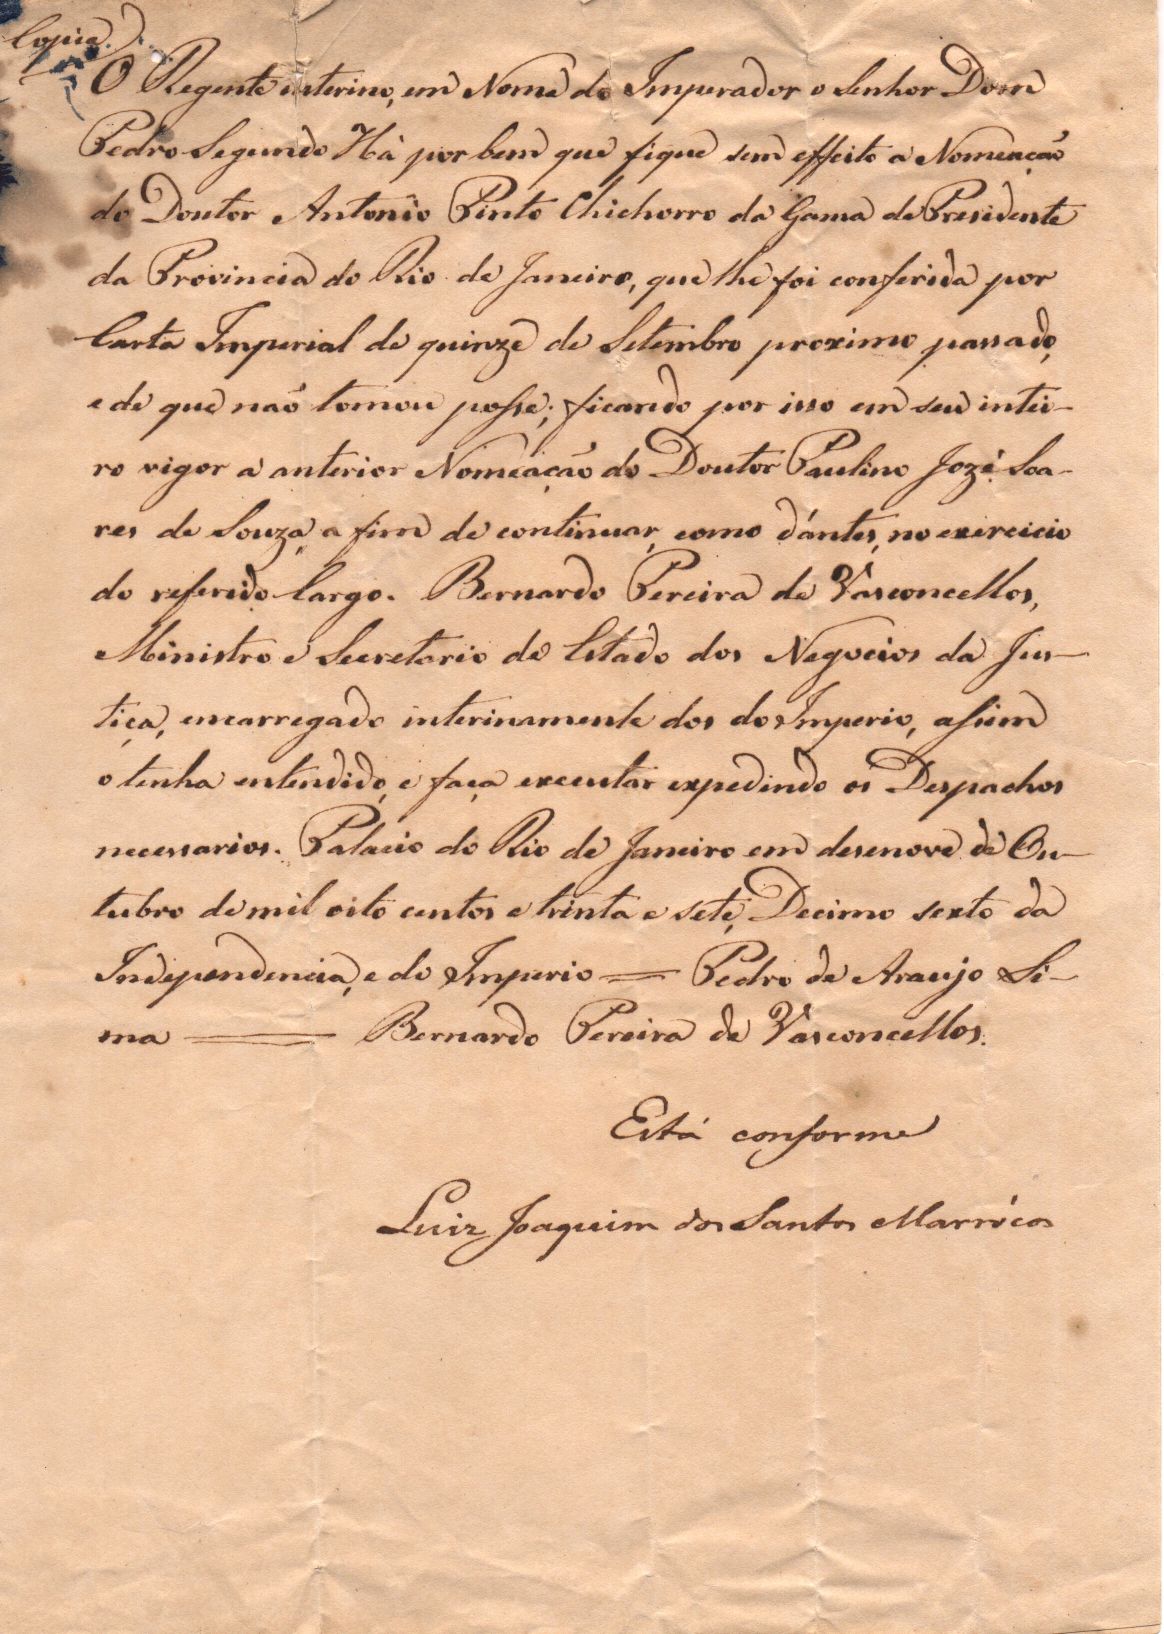 Copia.
O Regente interino, em Nome do Imperador o Senhor Dom
Pedro Segundo Hà por bem que fique sem effeito a Nomeação
do Doutor Antonio Pinto Chichorro da Gama de Presidente
da Provincia do Rio de Janeiro, que lhe foi conferida por
Carta Imperial de quinze de Setembro proximo passado,
e de que não tomou posse; ficando por isso em seu intei-
ro vigor a anterior Nomeação do Doutor Paulino Jozé Soa-
res de Souza, a fim de continuar, como d'antes, no exercicio
do referido Cargo. Bernardo Pereira de Vasconcellos,
Ministro e Secretario de Estado dos Negocios da Jus-
tiça, encarregado interinamente dos do Imperio, assim
o tenha entendido, e faça executar expedindo os Despachos
necessarios. Palacio do Rio de Janeiro em desenove de Ou-
tubro de mil oito centos e trinta e sete, Decimo sexto da
Independencia, e do Imperio = Pedro de Araujo Li-
ma = Bernardo Pereira de Vasconcellos.
Está conforme
Luiz Joaquim dos Santos Marrócos